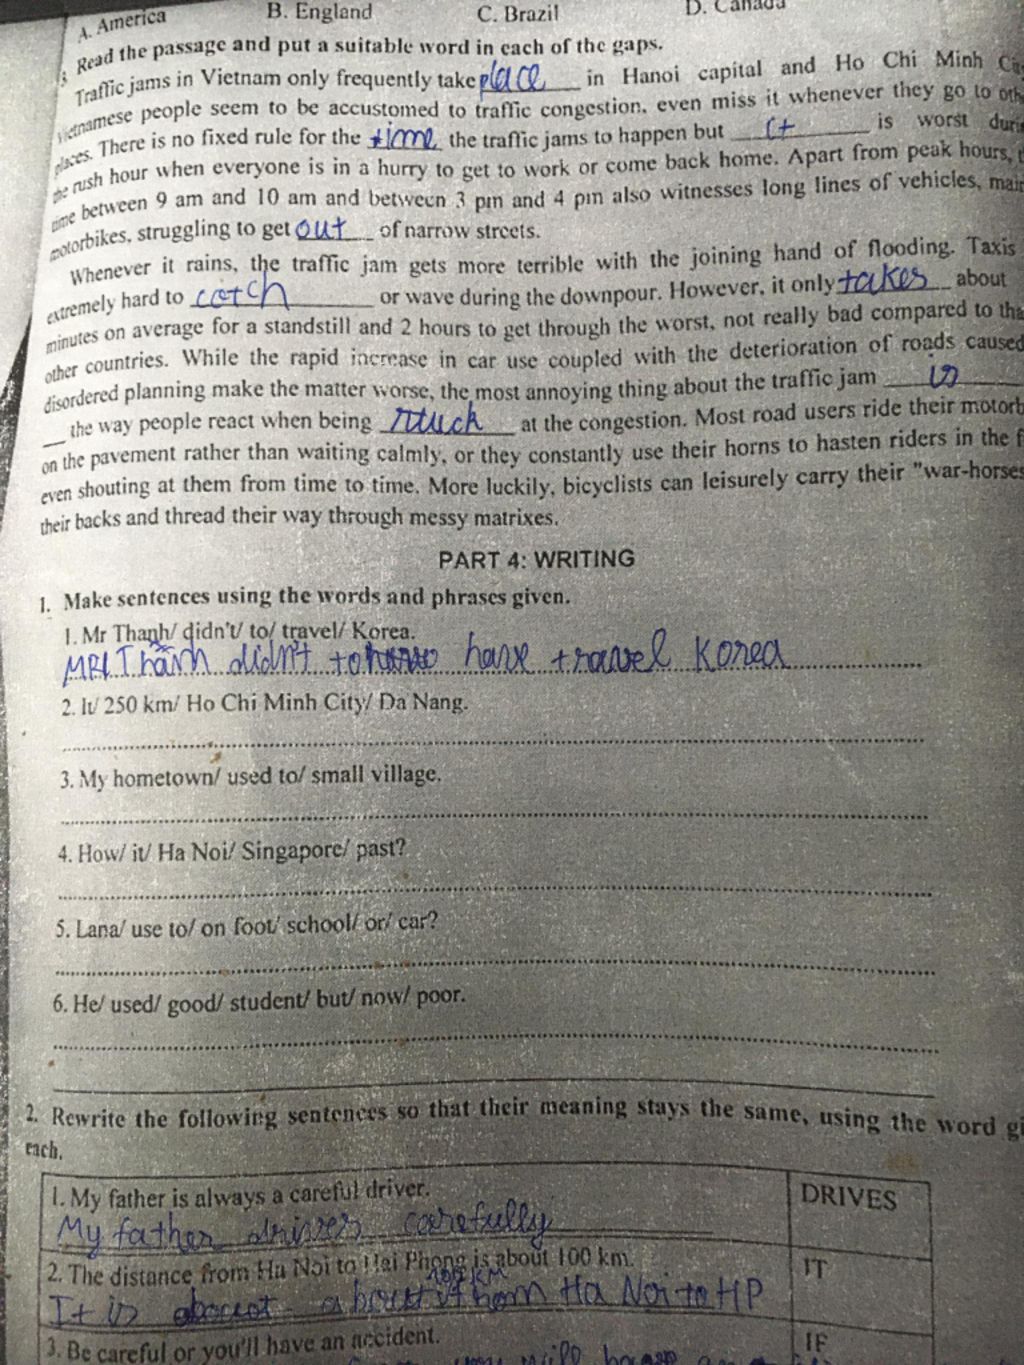 A. America B. England C. Brazil D. Canada
3. Read the passage and put a suitable word in each of the gaps.
Traffic jams in Vietnam only frequently take place in Hanoi capital and Ho Chi Minh
Vietnamese people seem to be accustomed to traffic congestion, even miss it whenever they go to
places. There is no fixed rule for the time the traffic jams to happen but it is worst
the rush hour when everyone is in a hurry to get to work or come back home. Apart from peak hours,
time between 9 am and 10 am and between 3 pm and 4 pm also witnesses long lines of vehicles,
motorbikes, struggling to get out of narrow streets.
Whenever it rains, the traffic jam gets more terrible with the joining hand of flooding. Taxis
extremely hard to catch or wave during the downpour. However, it only takes about
minutes on average for a standstill and 2 hours to get through the worst, not really bad compared to
other countries. While the rapid increase in car use coupled with the deterioration of roads caused
disordered planning make the matter worse, the most annoying thing about the traffic jam is
__ the way people react when being stuck at the congestion. Most road users ride their
on the pavement rather than waiting calmly, or they constantly use their horns to hasten riders in the
even shouting at them from time to time. More luckily, bicyclists can leisurely carry their "war-horses
their backs and thread their way through messy matrixes.
PART 4: WRITING
1. Make sentences using the words and phrases given.
1. Mr Thanh/ didn't/ to/ travel/ Korea.
didn't to have travel Korea
2. It/ 250 km/ Ho Chi Minh City/ Da Nang.
3. My hometown/ used to/ small village.
4. How/ it/ Ha Noi/ Singapore/ past?
5. Lana/ use to/ on foot/ school/ or/ car?
6. He/ used/ good/ student/ but/ now/ poor.
2. Rewrite the following sentences so that their meaning stays the same, using the word
each.
1. My father is always a careful driver. DRIVES
My father drives carefully
2. The distance from Ha Noi to Hai Phong is about 100 km. IT
It is about Ha Noi to HP
3. Be careful or you'll have an accident. IF
you will